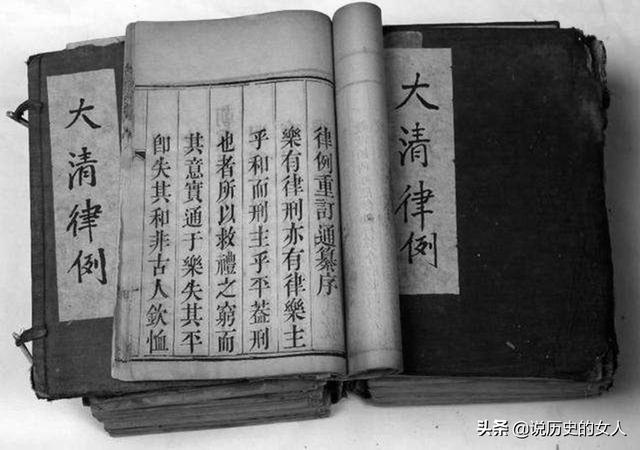 大清律例
律例重訂通纂序
樂有律刑亦有律樂主
乎和而刑主乎平蓋刑
也者所以救禮之窮而
其意實通于樂失其平
卽失其和非古人欽恤
大清律例
头条 @说历史的女人